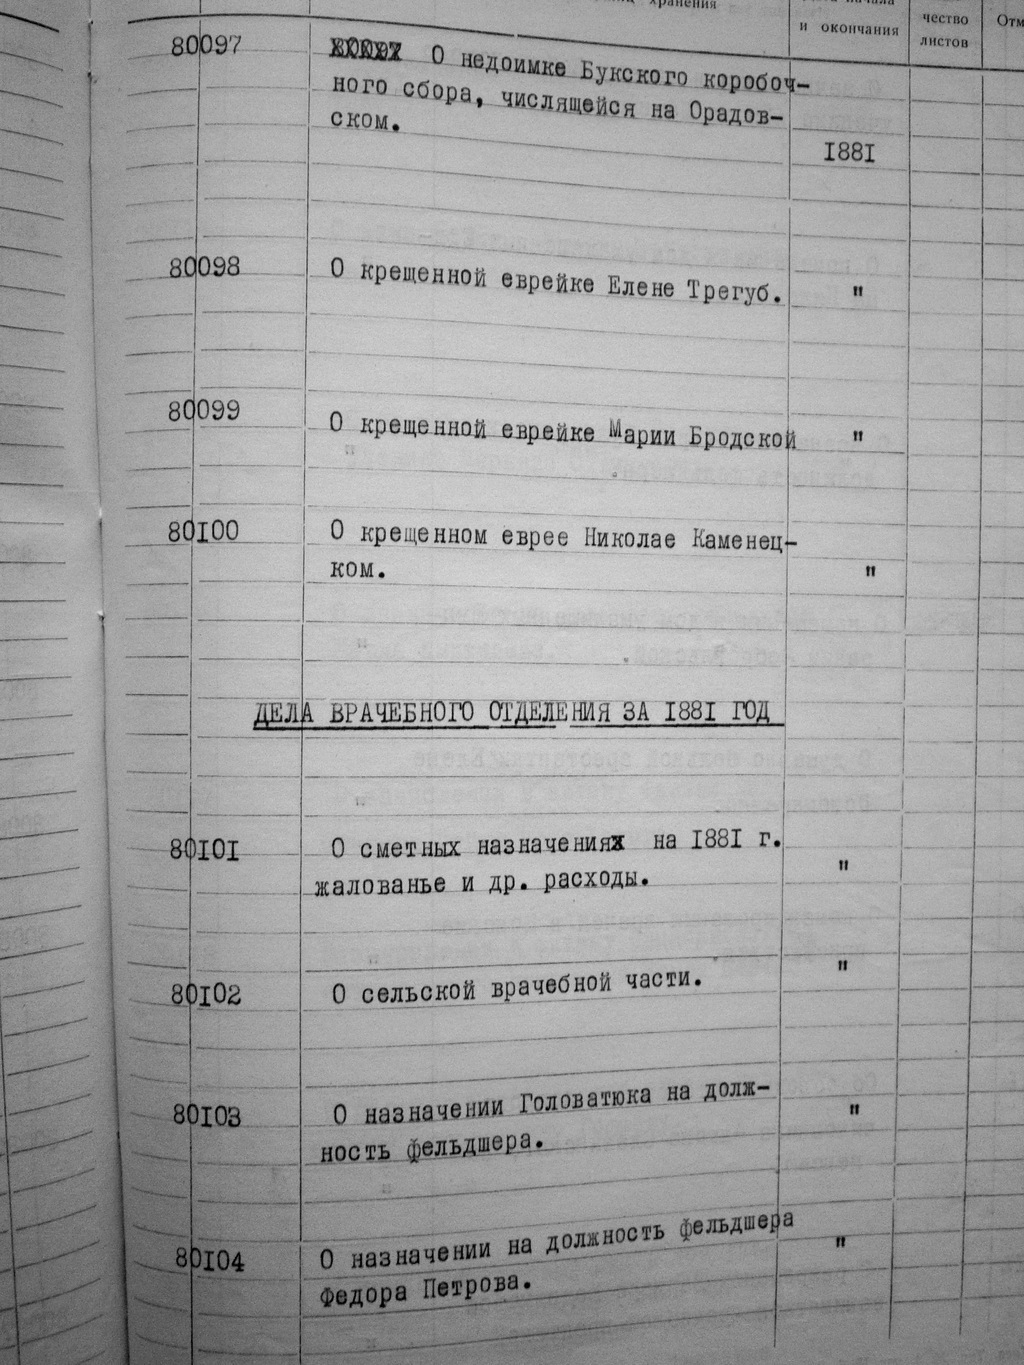 хранения
и окончания
чество
листов
80097 О недоимке Букского коробоч-
ного сбора, числящейся на Орадов-
ском.
1881
80098 О крещенной еврейке Елене Трегуб. "
80099 О крещенной еврейке Марии Бродской "
80100 О крещенном еврее Николае Каменец-
ком. "
ДЕЛА ВРАЧЕБНОГО ОТДЕЛЕНИЯ ЗА 1881 ГОД
80101 О сметных назначениях на 1881 г.
жалованье и др. расходы. "
80102 О сельской врачебной части. "
80103 О назначении Головатюка на долж-
ность фельдшера. "
80104 О назначении на должность фельдшера
Федора Петрова. "